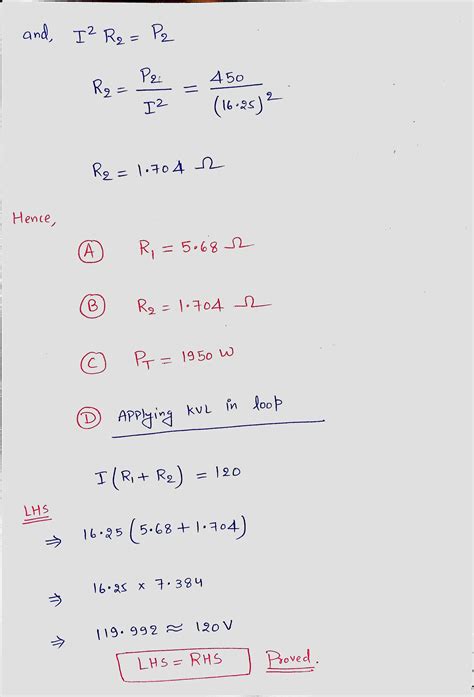 and, I² R₂ = P₂
R₂ = P₂ / I² = 450 / (16.25)²
R₂ = 1.704 Ω
Hence,
Ⓐ R₁ = 5.68 Ω
Ⓑ R₂ = 1.704 Ω
Ⓒ P_T = 1950 W
Ⓓ Applying KVL in loop
I (R₁ + R₂) = 120
LHS
⇒ 16.25 (5.68 + 1.704)
⇒ 16.25 × 7.384
⇒ 119.992 ≈ 120 V
LHS = RHS Proved.